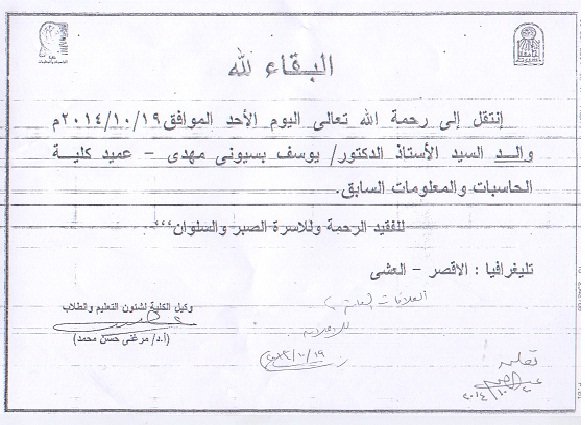 البقاء لله
إنتقل إلى رحمة الله تعالى اليوم الأحد الموافق٢٠١٤/١٠/١٩م
والد السيد الأستاذ الدكتور/ يوسف بسيونى مهدى - عميد كلية
الحاسبات والمعلومات السابق.
للفقيد الرحمة وللاسرة الصبر والسلوان،،،
تليغرافيا : الاقصر - العشى
العلاقات العامة
وكيل الكلية لشئون التعليم والطلاب
(ا.د/ مرغنى حسن محمد)
١٠/١٩